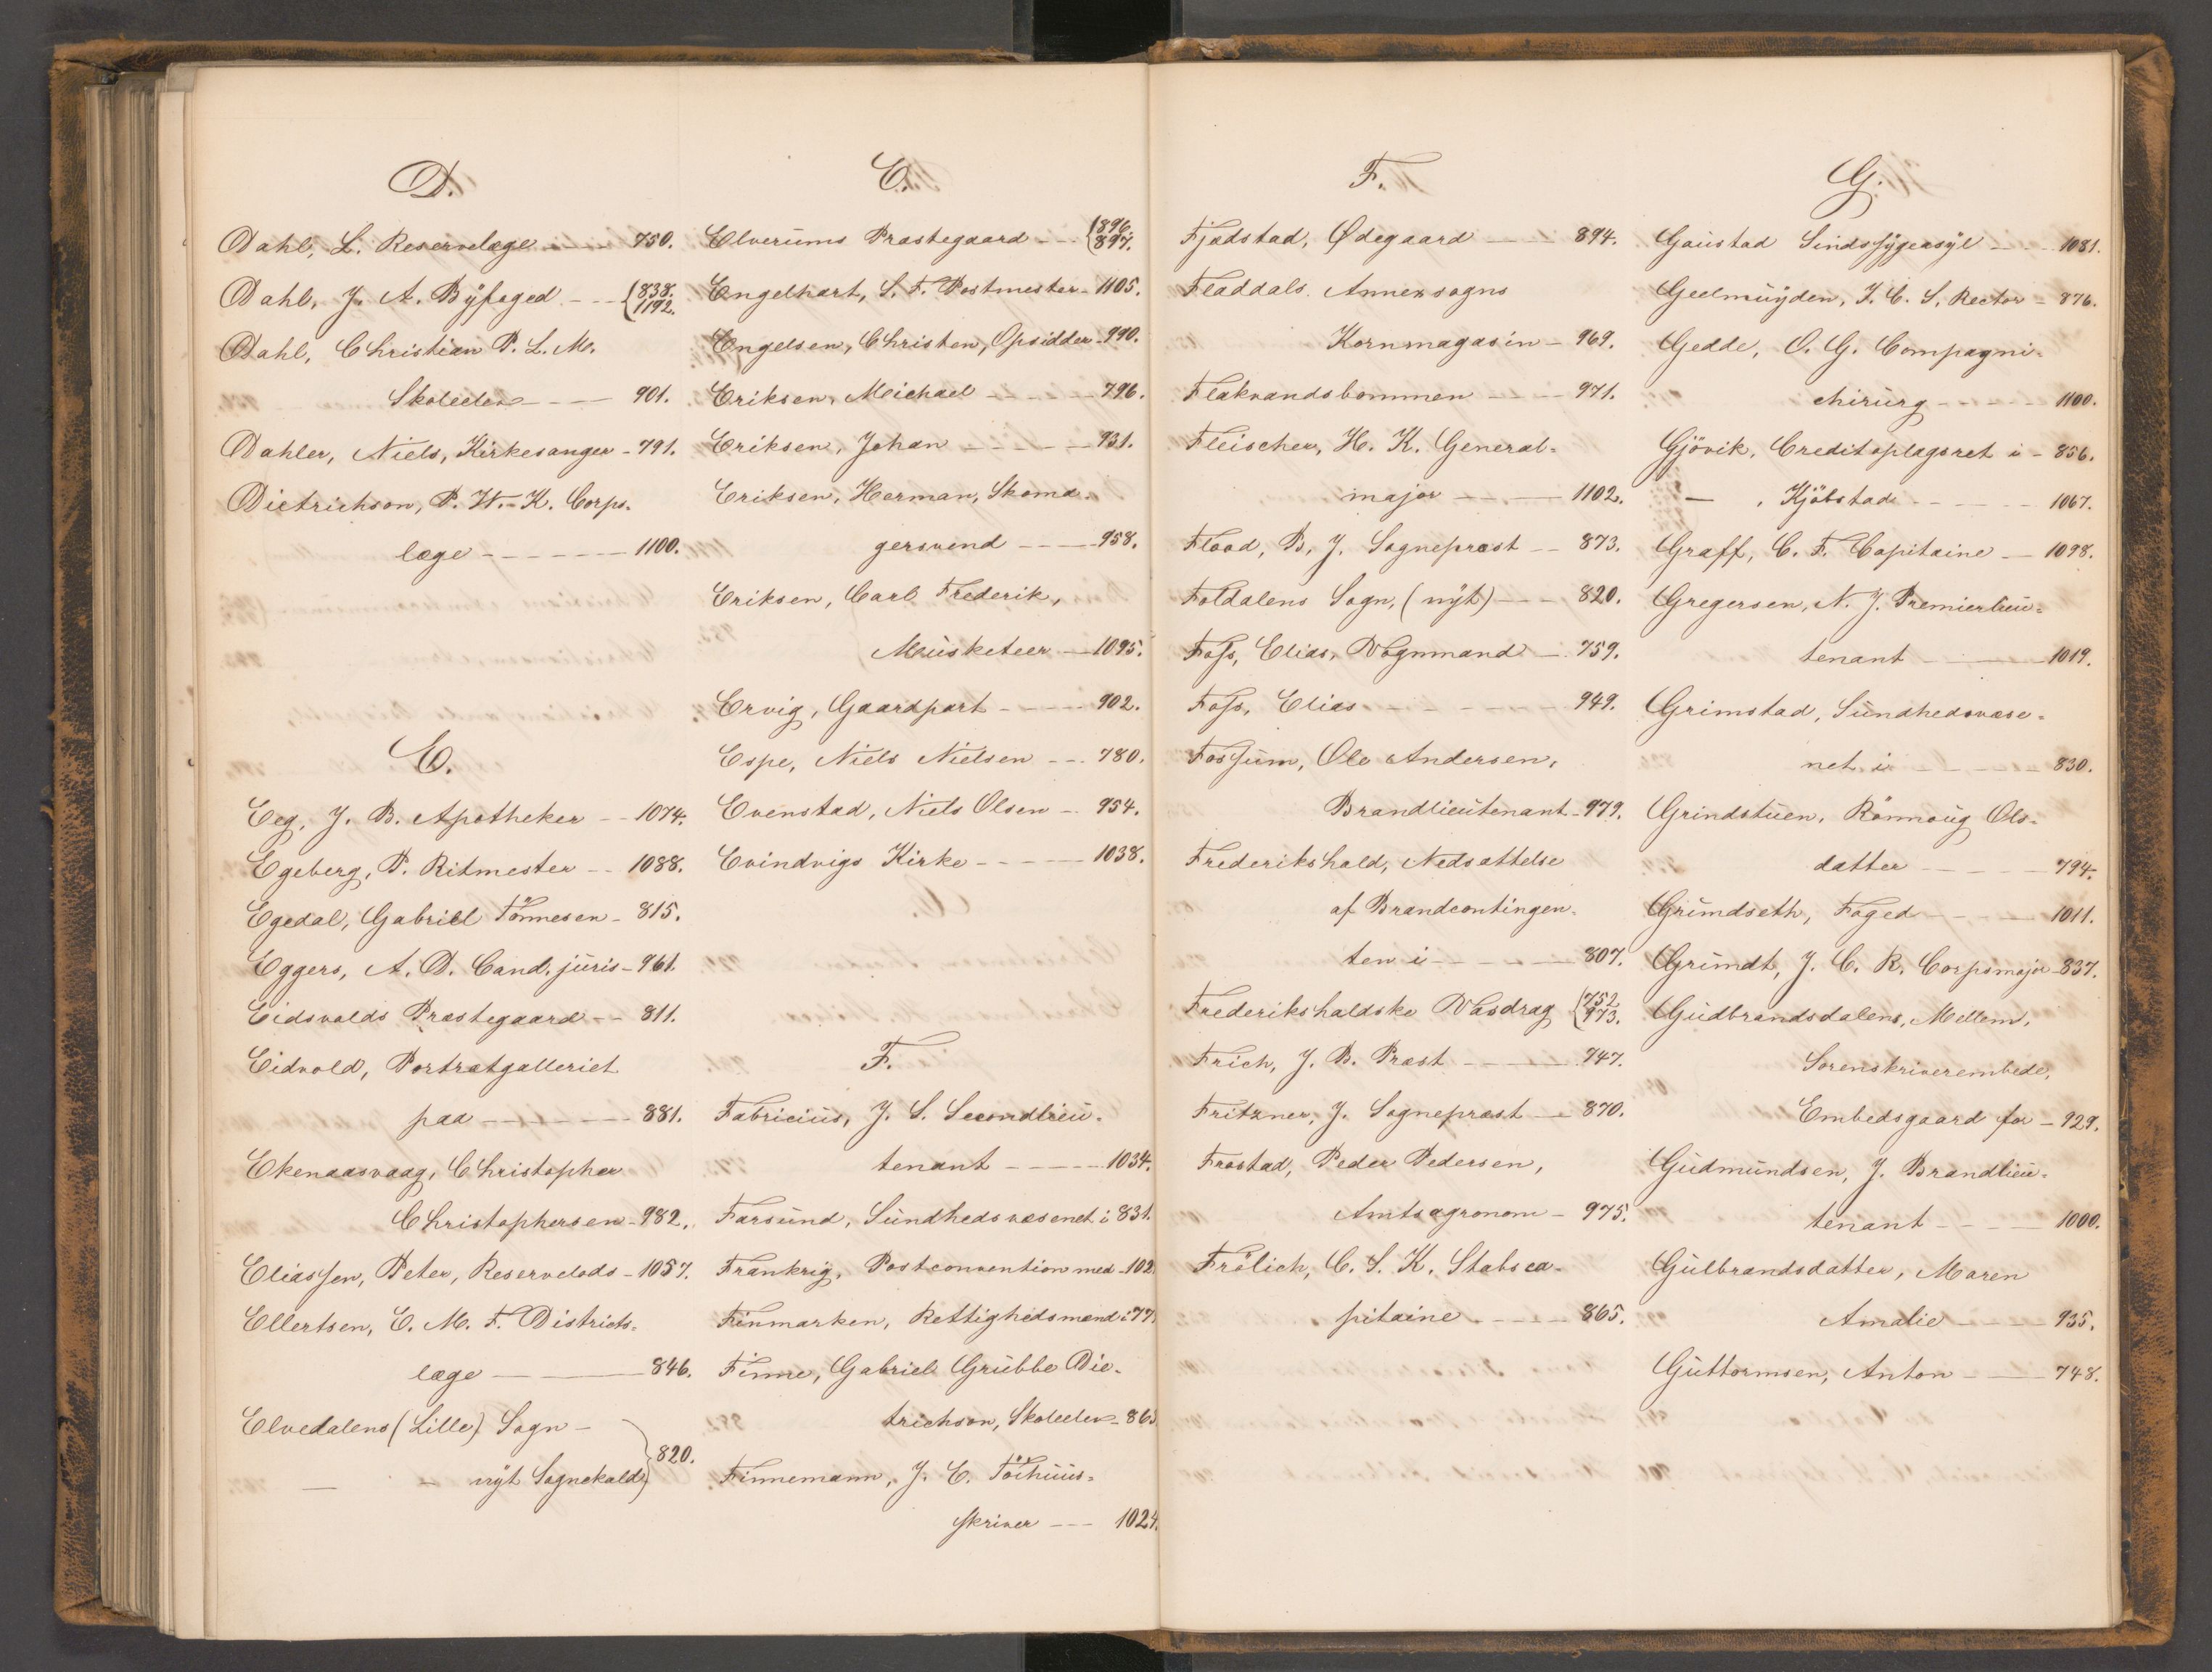 D.
Dahl, L. Reservelæge - - - 750.
Dahl, J. A. Byfoged - - {838. 1192.
Dahl, Christian P. L. M.
Skoleelev - - - 901.
Dahler, Niels, Kirkesanger - 791.
Dietrichson, P. W. K. Corps-
læge - - - - - - 1100.
E.
Eeg, J. B. Apotheker - - 1074.
Egeberg, P. Ritmester - - 1088.
Egedal, Gabriel Tönnesen - 815.
Eggers, A. D. Cand. juris - 961.
Eidsvolds Præstegaard - - 811.
Eidvold, Portrætgalleriet
paa - - - - - - 881.
Ekenaasvaag, Christopher
Christophersen - 982.
Eliassen, Peter, Reservelods - 1057.
Ellertsen, E. M. F. Districts-
læge - - - 846.
Elvedalens (Lille) Sogn -
— - nyt Sognekald} 820.
E.
Elverums Præstegaard - - {896. 897.
Engelhart, S. F. Postmester - 1105.
Engelsen, Christen, Opsidder - 990.
Eriksen, Meichael - - - - 796.
Eriksen, Johan - - - - - 931.
Eriksen, Herman, Skoma-
gersvend - - - 958.
Eriksen, Carl Frederik,
Musketeer - 1095.
Ervig, Gaardpart - - - - 902.
Espe, Niels Nielsen - - - 780.
Evenstad, Niels Olsen - - 954.
Evindvigs Kirke - - - - - 1038.
F.
Fabricius, J. S. Secondlieu-
tenant - - - - - 1034.
Farsund, Sundhedsvæsenet i 831.
Frankrig, Postconvention med - 102
Finmarken, Rettighedsmænd i 77
Finne, Gabriel Grubbe Die-
trichson, Skoleelev - 865
Finnemann, J. C. Töihuus-
skriver - - - 1024.
F.
Fjædstad, Ødegaard - - - 894.
Fladdals Annexsogns
Kornmagasin - 969.
Flakvandsbommen - - - 971.
Fleischer, H. K. General-
major - - - 1102.
Flood, B. J. Sognepræst - - 873.
Foldalens Sogn, (nyt) - - - 820.
Foss, Elias, Vognmand - 759.
Foss, Elias - - - - - - 949.
Fossum, Ole Andersen,
Brandlieutenant - 979.
Frederikshald, Nedsættelse
af Brandcontingen-
ten i - - - - - 807.
Frederikshaldske Vasdrag {752. 973.
Frich, J. B. Præst - - - - 747.
Fritzner, J. Sognepræst - - 870.
Frostad, Peder Pedersen,
Amtsagronom - 975.
Frölich, C. S. K. Stabsca-
pitaine - - - - 865.
G.
Gaustad Sindssygeasyl - - - 1081.
Geelmuyden, J. C. S. Rector - 876.
Gedde, O. G. Compagni-
chirurg - - - - - 1100.
Gjövik, Creditoplagsret i - 856.
— , Kjöbstad - - - - - 1067.
Graff, C. F. Capitaine - - 1098.
Gregersen, N. J. Premierlieu-
tenant - - - - 1019.
Grimstad, Sundhedsvæse-
net i - - - - - 830.
Grindstuen, Rönnoug Ols-
datter - - - - - 794.
Grundseth, Foged - - - - 1011.
Grundt, J. C. R. Corpsmajor - 837.
Gudbrandsdalens, Mellem,
Sorenskriverembede,
Embedsgaard for - 929.
Gudmundsen, J. Brandlieu-
tenant - - - - 1000.
Gulbrandsdatter, Maren
Amalie - - - - 935.
Guttormsen, Anton - - - 748.